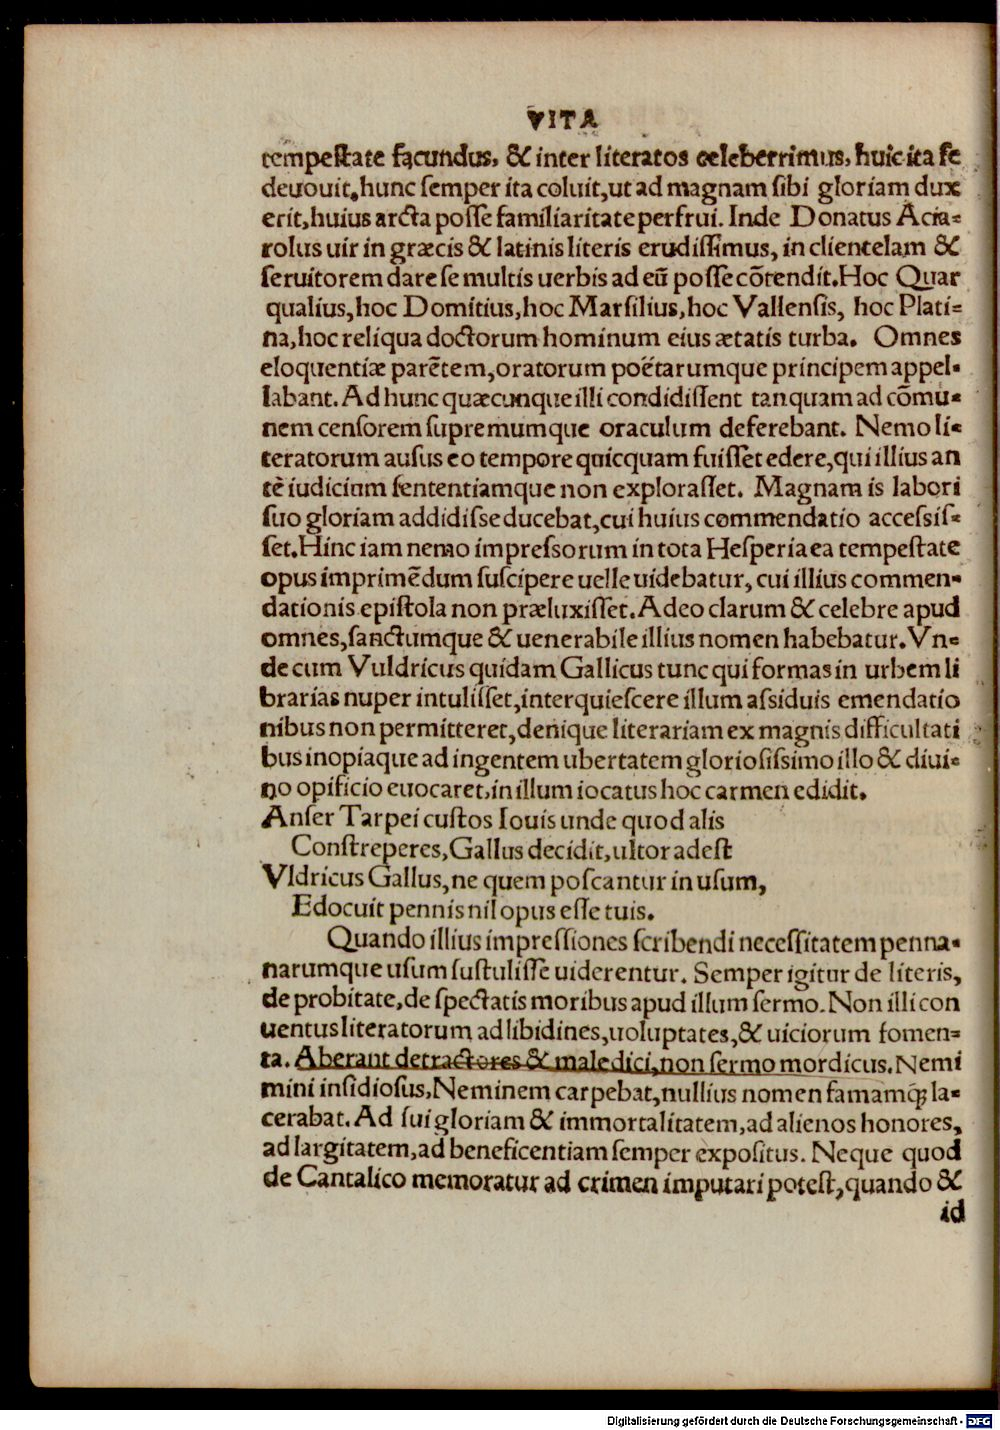 VITA
tempestate facundus, & inter literatos celeberrimus, huic ita se
deuouit, hunc semper ita coluit, ut ad magnam sibi gloriam dux
erit, huius arcta posse familiaritate perfrui. Inde Donatus Acia-
rolus uir in græcis & latinis literis erudissimus, in clientelam &
seruitorem dare se multis uerbis ad eū posse cōtendit. Hoc Quar
qualius, hoc Domitius, hoc Marsilius, hoc Vallensis, hoc Plati-
na, hoc reliqua doctorum hominum eius ætatis turba. Omnes
eloquentiæ parētem, oratorum poëtarumque principem appel-
labant. Ad hunc quæcunque illi condidissent tanquam ad cōmu-
nem censorem supremumque oraculum deferebant. Nemo li-
teratorum ausus eo tempore quicquam fuisset edere, qui illius an
tē iudicium sententiamque non explorasset. Magnam is labori
suo gloriam addidisse ducebat, cui huius commendatio accessis-
set. Hinc iam nemo impressorum in tota Hesperia ea tempestate
opus imprimēdum suscipere uelle uidebatur, cui illius commen-
dationis epistola non præluxisset. Adeo clarum & celebre apud
omnes, sanctumque & uenerabile illius nomen habebatur. Vn-
de cum Vuldricus quidam Gallicus tunc qui formas in urbem li
brarias nuper intulisset, interquiescere illum assiduis emendatio
nibus non permitteret, denique literariam ex magnis difficultati
bus inopiaque ad ingentem ubertatem gloriosissimo illo & diui-
no opificio euocaret, in illum iocatus hoc carmen edidit.
Anser Tarpei custos Iouis unde quod alis
Constreperes, Gallus decidit, ultor adest
Vldricus Gallus, ne quem poscantur in usum,
Edocuit pennis nil opus esse tuis.
Quando illius impressiones scribendi necessitatem penna-
narumque usum sustulisse uiderentur. Semper igitur de literis,
de probitate, de spectatis moribus apud illum sermo. Non illi con
uentus literatorum ad libidines, uoluptates, & uiciorum fomen-
ta. Aberant detractores & maledici, non sermo mordicus. Nemi
mini insidiosus, Neminem carpebat, nullius nomen famamq́; la-
cerabat. Ad sui gloriam & immortalitatem, ad alienos honores,
ad largitatem, ad beneficentiam semper expositus. Neque quod
de Cantalico memoratur ad crimen imputari potest, quando &
id
Digitalisierung gefördert durch die Deutsche Forschungsgemeinschaft - DFG